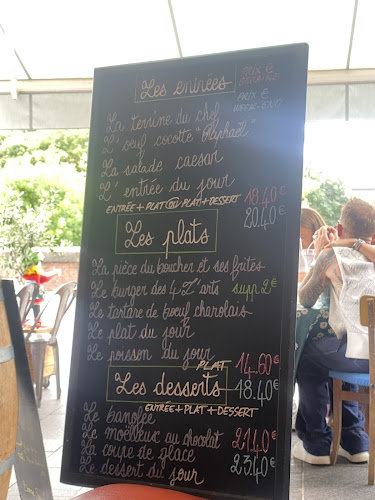 Les entrées
PRIX € SEMAINE
PRIX € WEEK-END
La terrine du chef
L'oeuf cocotte "Raphaël"
La salade caesar
L'entrée du jour
ENTRÉE + PLAT OU PLAT + DESSERT
18.40€
20.40€
Les plats
La pièce du boucher et ses frites
Le burger des 4 Z'arts supp 2€
Le tartare de boeuf charolais
Le plat du jour
Le poisson du jour
PLAT
14.60€
18.40€
Les desserts
ENTRÉE + PLAT + DESSERT
Le banofee
21.40€
Le moëlleux au chocolat
La coupe de glace
23.40€
Le dessert du jour